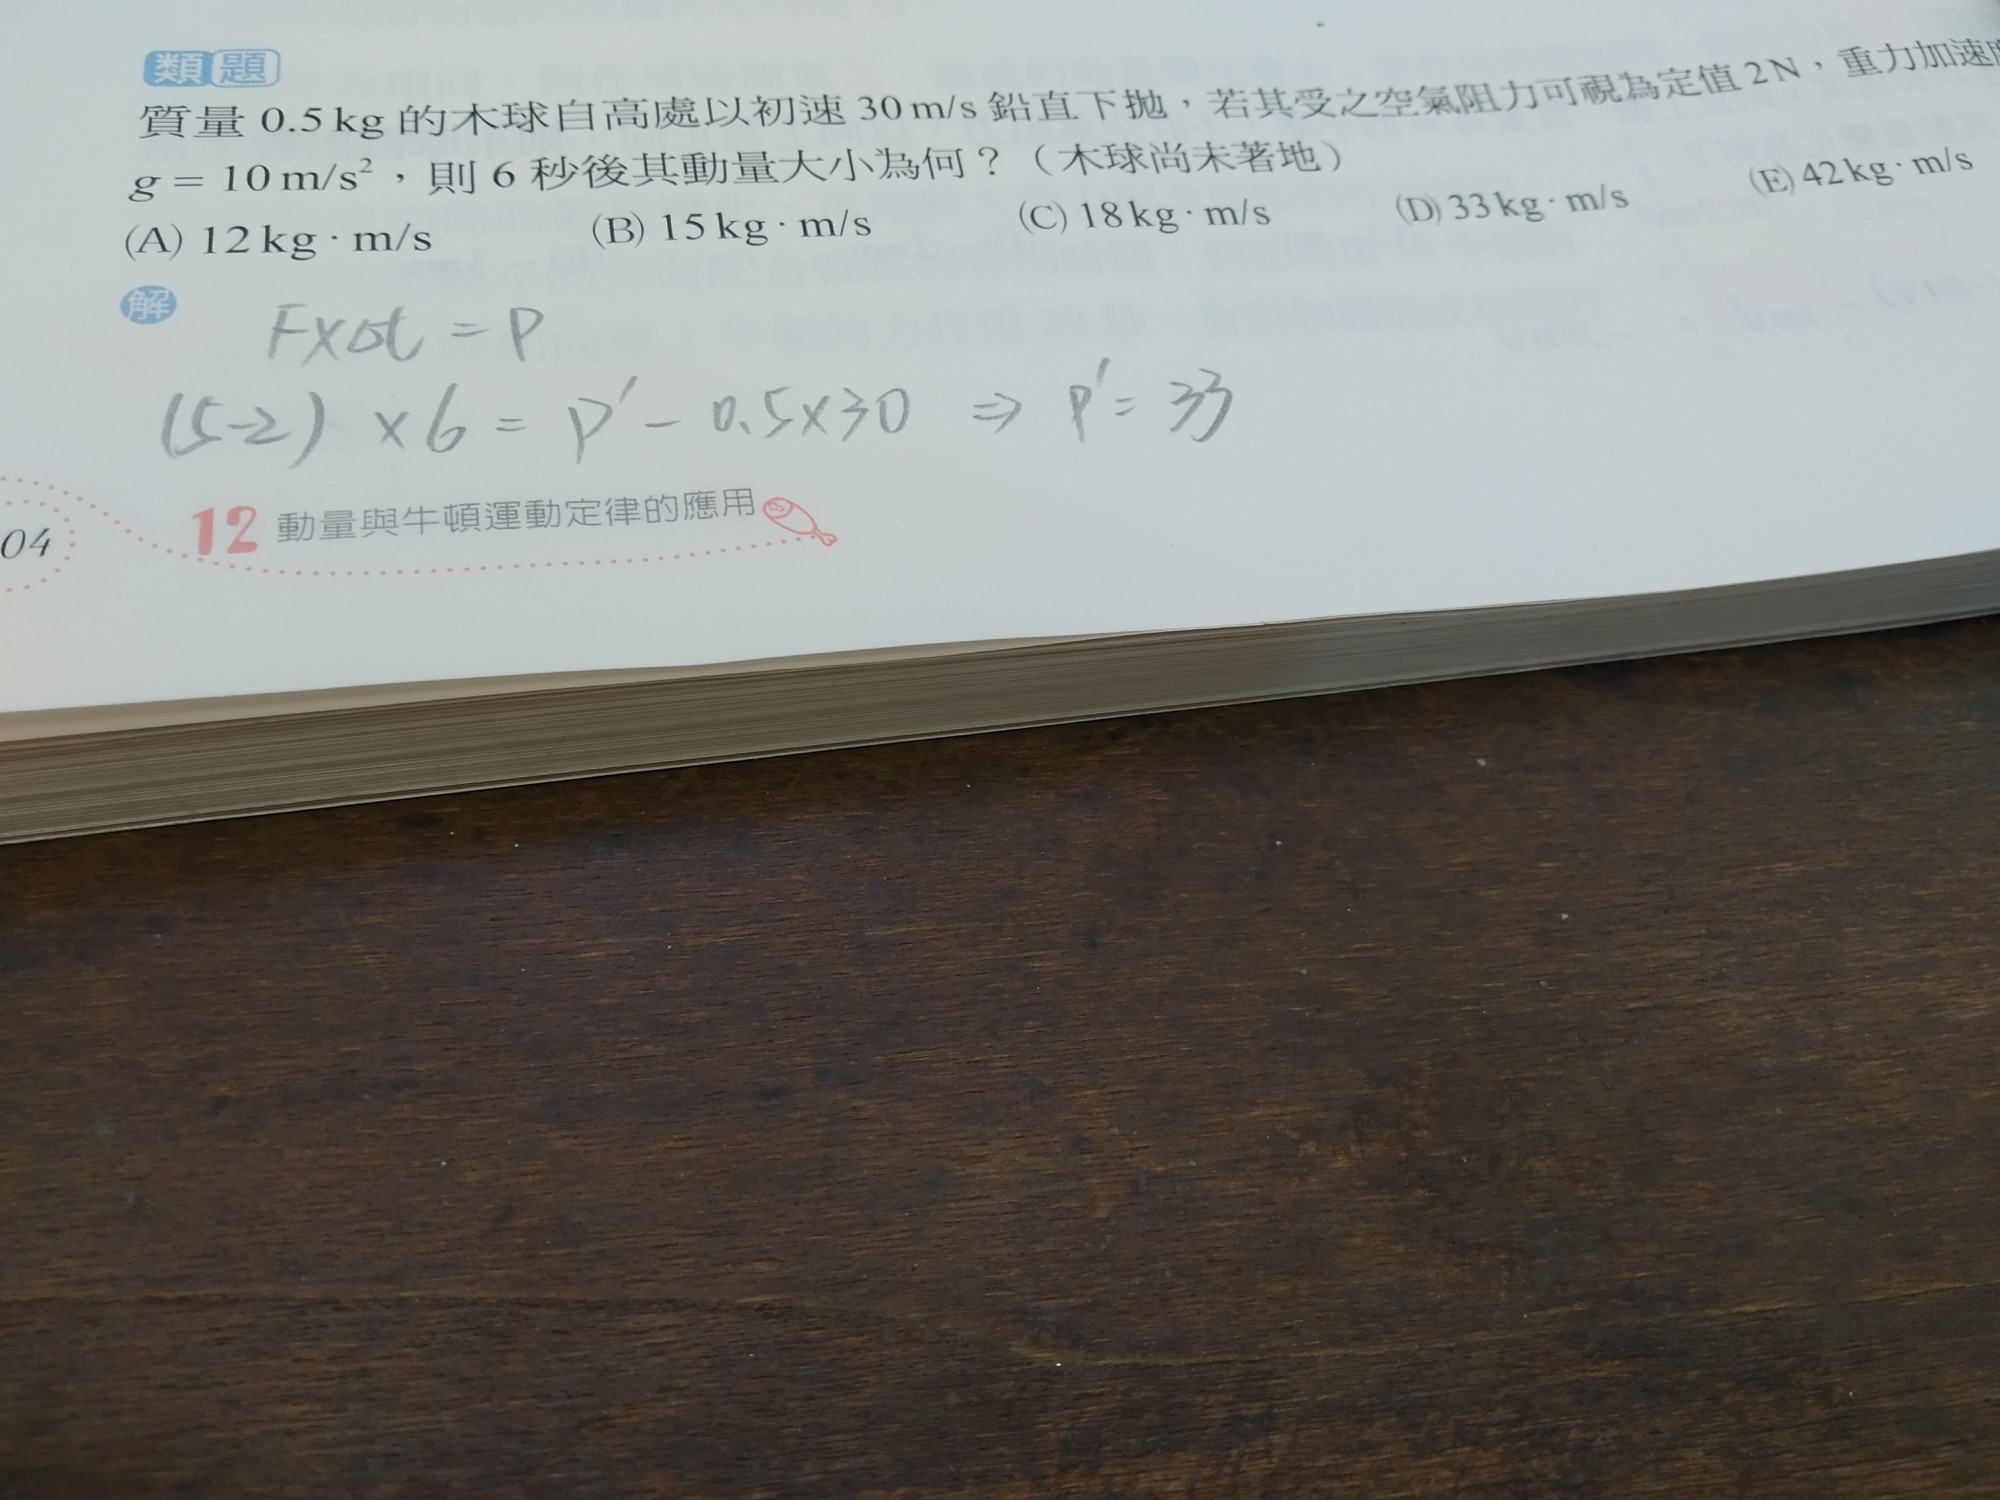 類題
質量 0.5 kg 的木球自高處以初速 30 m/s 鉛直下拋，若其受之空氣阻力可視為定值 2 N，重力加速度
g = 10 m/s²，則 6 秒後其動量大小為何？（木球尚未著地）
(A) 12 kg · m/s (B) 15 kg · m/s (C) 18 kg · m/s (D) 33 kg · m/s (E) 42 kg · m/s
解
F×Δt = P
(5-2) × 6 = P′ − 0.5×30 ⇒ P′ = 33
04 12 動量與牛頓運動定律的應用